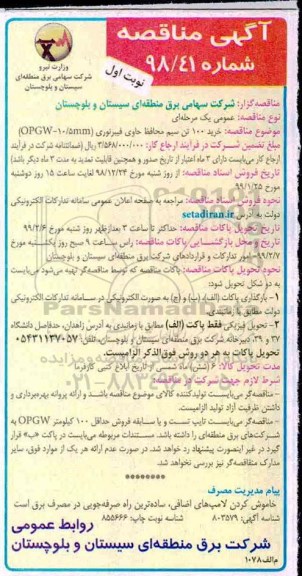 آگهی مناقصه
شماره ۹۸/۴۱
نوبت اول
وزارت نیرو
شرکت سهامی برق منطقه‌ای
سیستان و بلوچستان
مناقصه‌گزار: شرکت سهامی برق منطقه‌ای سیستان و بلوچستان
نوع مناقصه: عمومی یک مرحله‌ای
موضوع مناقصه: خرید ۱۰۰ تن سیم محافظ حاوی فیبرنوری (OPGW-۱۰/۵mm)
مبلغ تضمین شرکت در فرآیند ارجاع کار: ۳/۵۶۸/۰۰۰/۰۰۰ ریال (ضمانتنامه شرکت در فرآیند
ارجاع کار می‌بایست دارای ۳ ماه اعتبار از تاریخ صدور و همچنین قابلیت تمدید به مدت ۳ ماه دیگر باشد)
تاریخ فروش اسناد مناقصه: از روز شنبه مورخ ۹۸/۱۲/۲۴ لغایت ساعت ۱۵ روز دوشنبه
مورخ ۹۹/۱/۲۵
نحوه فروش اسناد مناقصه: مراجعه به صفحه اعلان عمومی سامانه تدارکات الکترونیکی
دولت به آدرس setadiran.ir
تاریخ تحویل پاکات مناقصه: حداکثر تا ساعت ۳ بعدازظهر روز شنبه مورخ ۹۹/۲/۶
تاریخ و محل بازگشایی پاکات مناقصه: راس ساعت ۹ صبح روز یکشنبه مورخ
۹۹/۲/۷ – امور تدارکات و قراردادهای شرکت برق منطقه‌ای سیستان و بلوچستان
نحوه تحویل پاکات مناقصه: پاکات مناقصه که توسط مناقصه‌گر تهیه می‌شود می‌بایست
به دو شکل تحویل شود:
۱- بارگذاری پاکات (الف)، (ب) و (ج) به صورت الکترونیکی در سامانه تدارکات الکترونیکی
دولت مطابق با زمانبندی.
۲- تحویل فیزیکی فقط پاکت (الف) مطابق با زمانبندی به آدرس زاهدان، حدفاصل دانشگاه
۳۷ و ۳۹، دبیرخانه شرکت برق منطقه‌ای سیستان و بلوچستان، تلفن: ۰۵۴۳۱۱۳۷۰۵۷
تحویل پاکات به هر دو روش فوق‌الذکر الزامیست.
مدت تحویل کالا: ۶ (شش) ماه شمسی از تاریخ ابلاغ کتبی کارفرما
شرط لازم جهت شرکت در مناقصه:
- مناقصه‌گر می‌بایست تولیدکننده کالای موضوع مناقصه باشد و ارائه پروانه بهره‌برداری و
داشتن ظرفیت آزاد تولید الزامیست.
- مناقصه‌گر می‌بایست تایپ تست و یا سابقه فروش حداقل ۱۰۰ کیلومتر OPGW به
شرکت‌های برق منطقه‌ای را داشته باشد. مستندات مربوطه می‌بایست در پاکت «ب» قرار
گیرد در غیر اینصورت پیشنهاد رد خواهد شد. در صورت عدم ارائه هر یک از موارد فوق، سایر
مدارک مناقصه‌گر نیز بررسی نخواهد شد.
پیام مدیریت مصرف
خاموش کردن لامپ‌های اضافی، ساده‌ترین راه صرفه‌جویی در مصرف برق است
شناسه آگهی: ۸۰۳۵۷۹ شناسه نوبت چاپ: ۸۵۵۶۶۶
روابط عمومی
شرکت برق منطقه‌ای سیستان و بلوچستان
م‌الف ۱۰۷۸